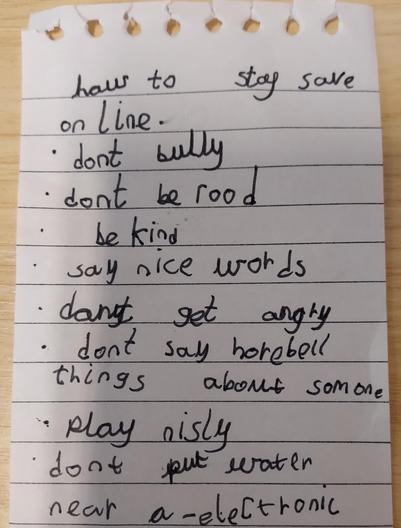 how to stay save
on line.
· dont bully
· dont be rood
· be kind
· say nice words
· dant get angry
· dont say horebell
things about somone
· play nisly
· dont put water
near a-electronic